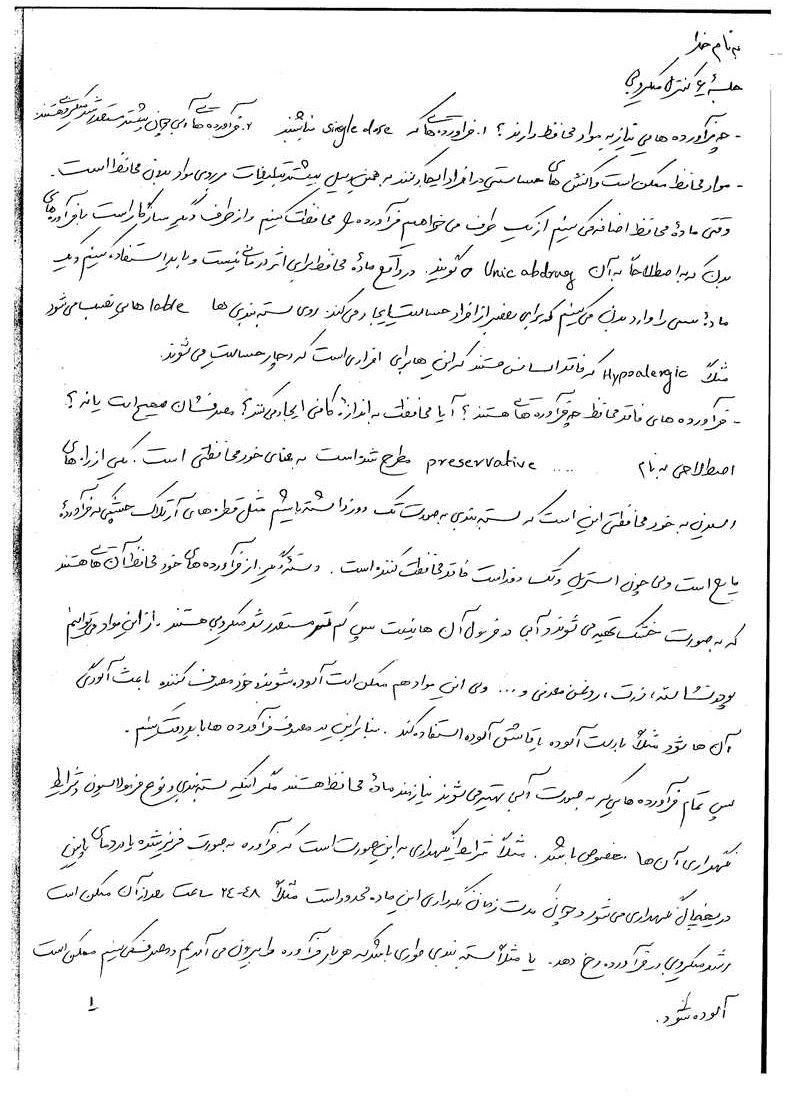 به نام خدا
جلسهٔ ۶ کنترل میکروبی
- چه فرآورده هایی نیاز به مواد محافظ دارند؟ ۱. فرآورده‌هایی که single dose نباشند ۲. فرآورده هایی آبی چون بیشتر مستعد رشد میکروبی هستند
- مواد محافظ ممکن است واکنش های حساسیتی در افراد ایجاد کنند به همین دلیل بیشتر تبلیغات بر روی مواد بدون محافظ است.
وقتی مادهٔ محافظ اضافه می کنیم از یک طرف می خواهیم فرآورده را محافظت کنیم و از طرف دیگر سازگار است با فرآورده‌های
بدن که به اصطلاحاً به آن گویند. در واقع مادهٔ محافظ برای اثر درمانی نیست و باید استفاده کنیم و یک
مادهٔ سمی را وارد بدن می کنیم که برای بعضی از افراد حساسیت ایجاد می کند. روی بسته بندی ها lable هایی نصب می شود
مثلاً Hypoalergic که فاقد اسانس هستند که این ها برای افرادی است که دچار حساسیت می شوند.
- فرآورده های فاقد محافظ چه فرآورده هایی هستند؟ آیا محافظت به اندازهٔ کافی ایجاد می کند؟ مصرفشان صحیح است یا نه؟
اصطلاحی به نام .... preservative مطرح شده است به معنای خود محافظتی است. یکی از راه های
رسیدن به خود محافظتی این است که بسته بندی به صورت تک دوز داشته باشیم مثل قطره های آرتلاک چشمی که فرآوردهٔ
مایع است ولی چون استریل و تک دوز است فاقد محافظت کننده است. دستهٔ دیگر از فرآورده های خود محافظ آن هایی هستند
که به صورت خشک تهیه می شوند و آبی در فرمول آن ها نیست پس کم تر مستعد رشد میکروبی هستند. از این مواد می توانیم
پودر نشاسته، ذرت، روغن معدنی و ... ولی این مواد هم ممکن است آلوده شوند و خود مصرف کننده باعث آلودگی
آن ها شود مثلاً با دست آلوده یا قاشق آلوده استفاده کند. بنابراین در مصرف فرآورده ها باید دقت کنیم.
پس تمام فرآورده هایی که به صورت آبی تهیه می شوند نیازمند مادهٔ محافظ هستند مگر اینکه بسته بندی و نوع فرمولاسیون و شرایط
نگهداری آن ها مخصوص باشد. مثلاً شرایط نگهداری به این صورت است که فرآورده به صورت فریز شده یا در دمای پایین
در یخچال نگهداری می شود و چون مدت زمان نگهداری این ماده محدود است مثلاً ۲۴-۴۸ ساعت بعد از آن ممکن است
رشد میکروبی در فرآورده رخ دهد. یا مثلاً بسته بندی طوری باشد که هر بار فرآورده را بیرون می آوریم و مصرف می کنیم ممکن است
آلوده نشود.
۱